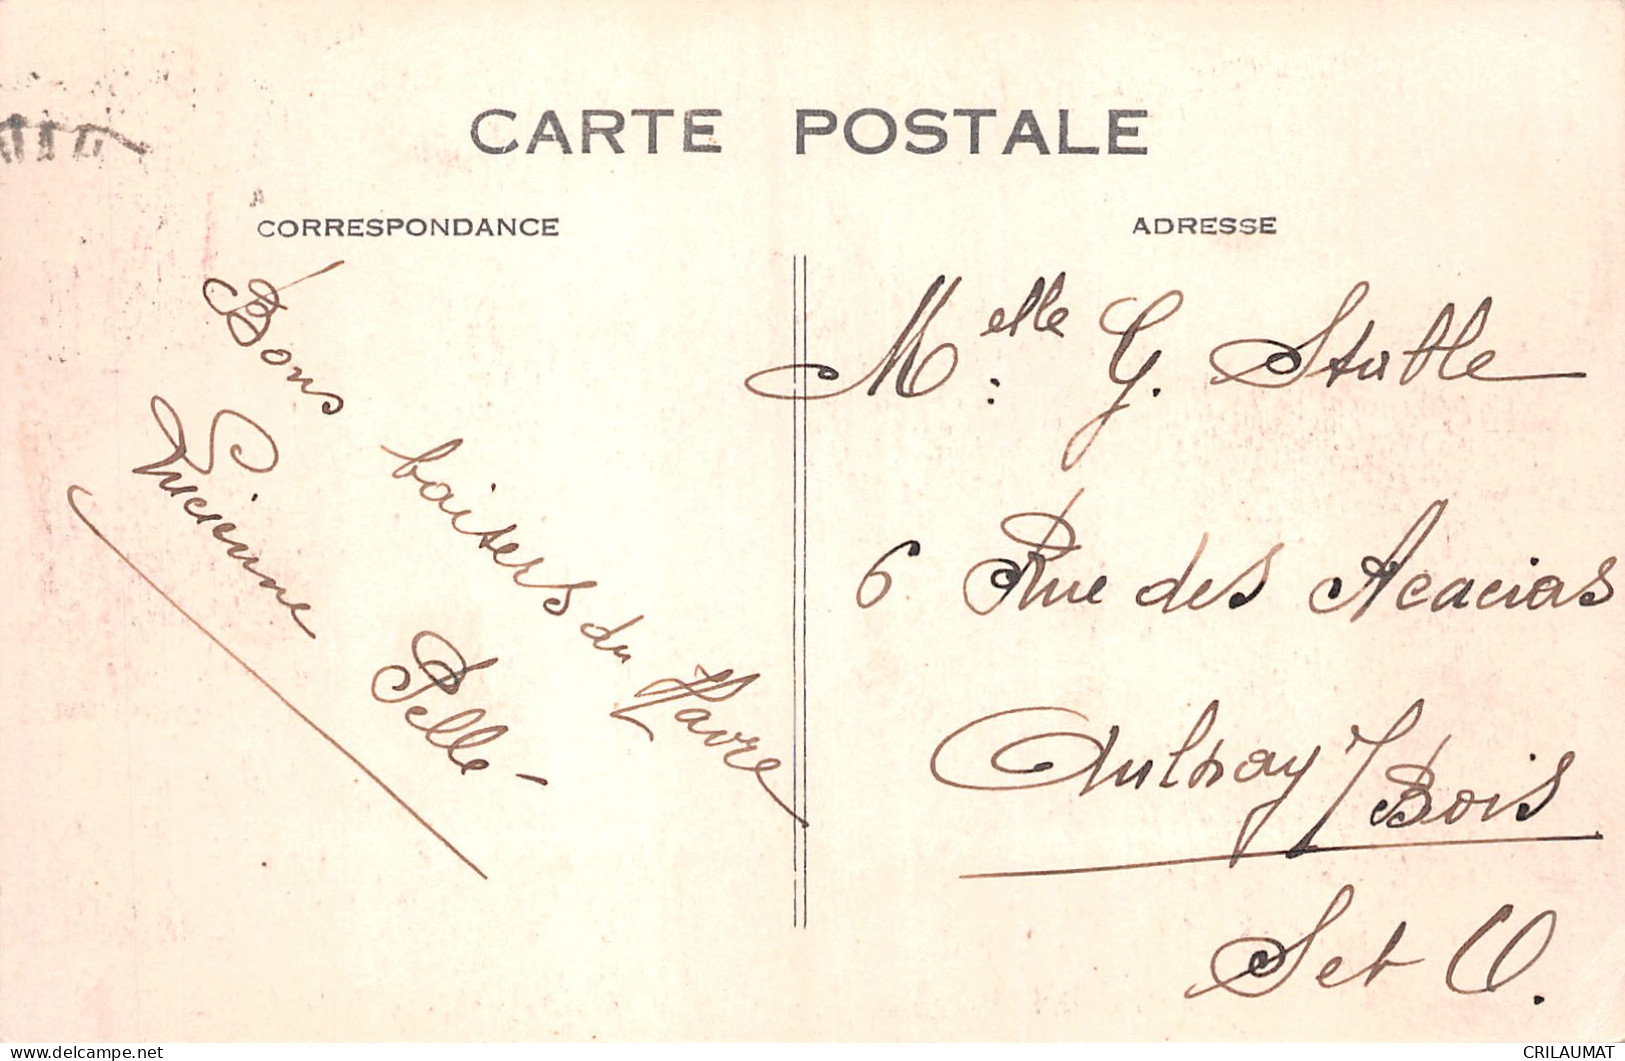 CARTE POSTALE
CORRESPONDANCE
ADRESSE
Bons baisers du Havre
Lucienne Pelle
Melle G. Stable
6 Rue des Acacias
Aulnay / Bois
S et O.
delcampe.net
CRILAUMAT